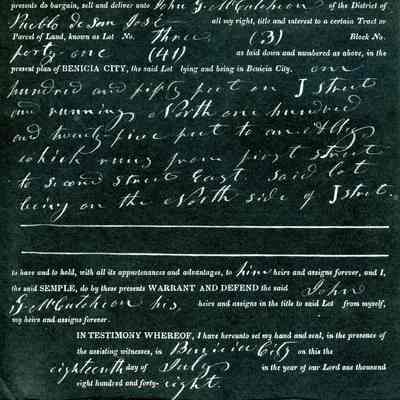 presents do bargain, sell and deliver unto John G. McCutcheon of the District of
Pueblo de San José all my right, title and interest to a certain Tract or
Parcel of Land, known as Lot No. Three (3) Block No.
forty one (41) as laid down and numbered as above, in the
present plan of BENICIA CITY, the said Lot lying and being in Benicia City, one
hundred and fifty feet on J street
and running North one hundred
and twenty five feet to an Alley
which runs from first street
to second street East. said lot
being on the North side of J street.
to have and to hold, with all its appurtenances and advantages, to him heirs and assigns forever, and I,
the said SEMPLE, do by these presents WARRANT AND DEFEND the said John
G. McCutcheon his heirs and assigns in the title to said Lot from myself,
my heirs and assigns forever.
IN TESTIMONY WHEREOF, I have hereunto set my hand and seal, in the presence of
the assisting witnesses, in Benicia City on this the
eighteenth day of July in the year of our Lord one thousand
eight hundred and forty- eight.